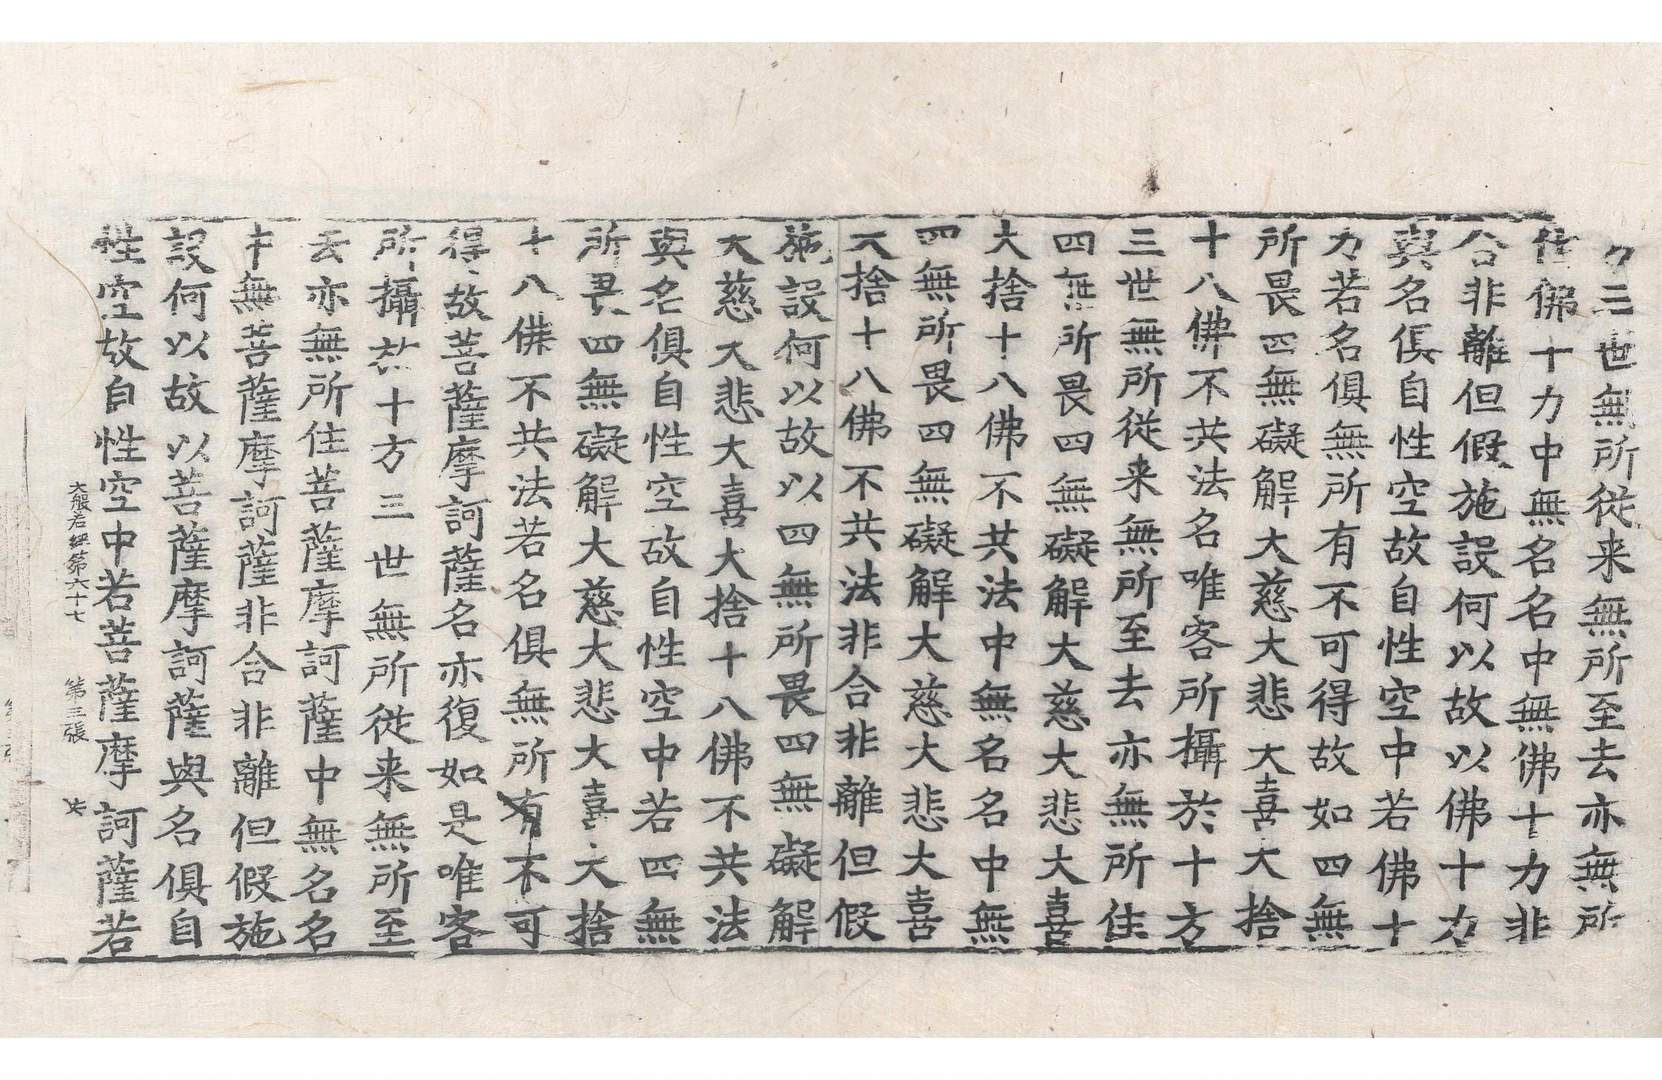 方三世無所從来無所至去亦無所
住佛十力中無名名中無佛十力非
合非離但假施設何以故以佛十力
與名俱自性空故自性空中若佛十
力若名俱無所有不可得故如四無
所畏四無礙解大慈大悲大喜大捨
十八佛不共法名唯客所攝於十方
三世無所從来無所至去亦無所住
四無所畏四無礙解大慈大悲大喜
大捨十八佛不共法中無名名中無
四無所畏四無礙解大慈大悲大喜
大捨十八佛不共法非合非離但假
施設何以故以四無所畏四無礙解
大慈大悲大喜大捨十八佛不共法
與名俱自性空故自性空中若四無
所畏四無礙解大慈大悲大喜大捨
十八佛不共法若名俱無所有不可
得故菩薩摩訶薩名亦復如是唯客
所攝於十方三世無所從来無所至
去亦無所住菩薩摩訶薩中無名名
中無菩薩摩訶薩非合非離但假施
設何以故以菩薩摩訶薩與名俱自
性空故自性空中若菩薩摩訶薩若
大般若經第六十七 第三張